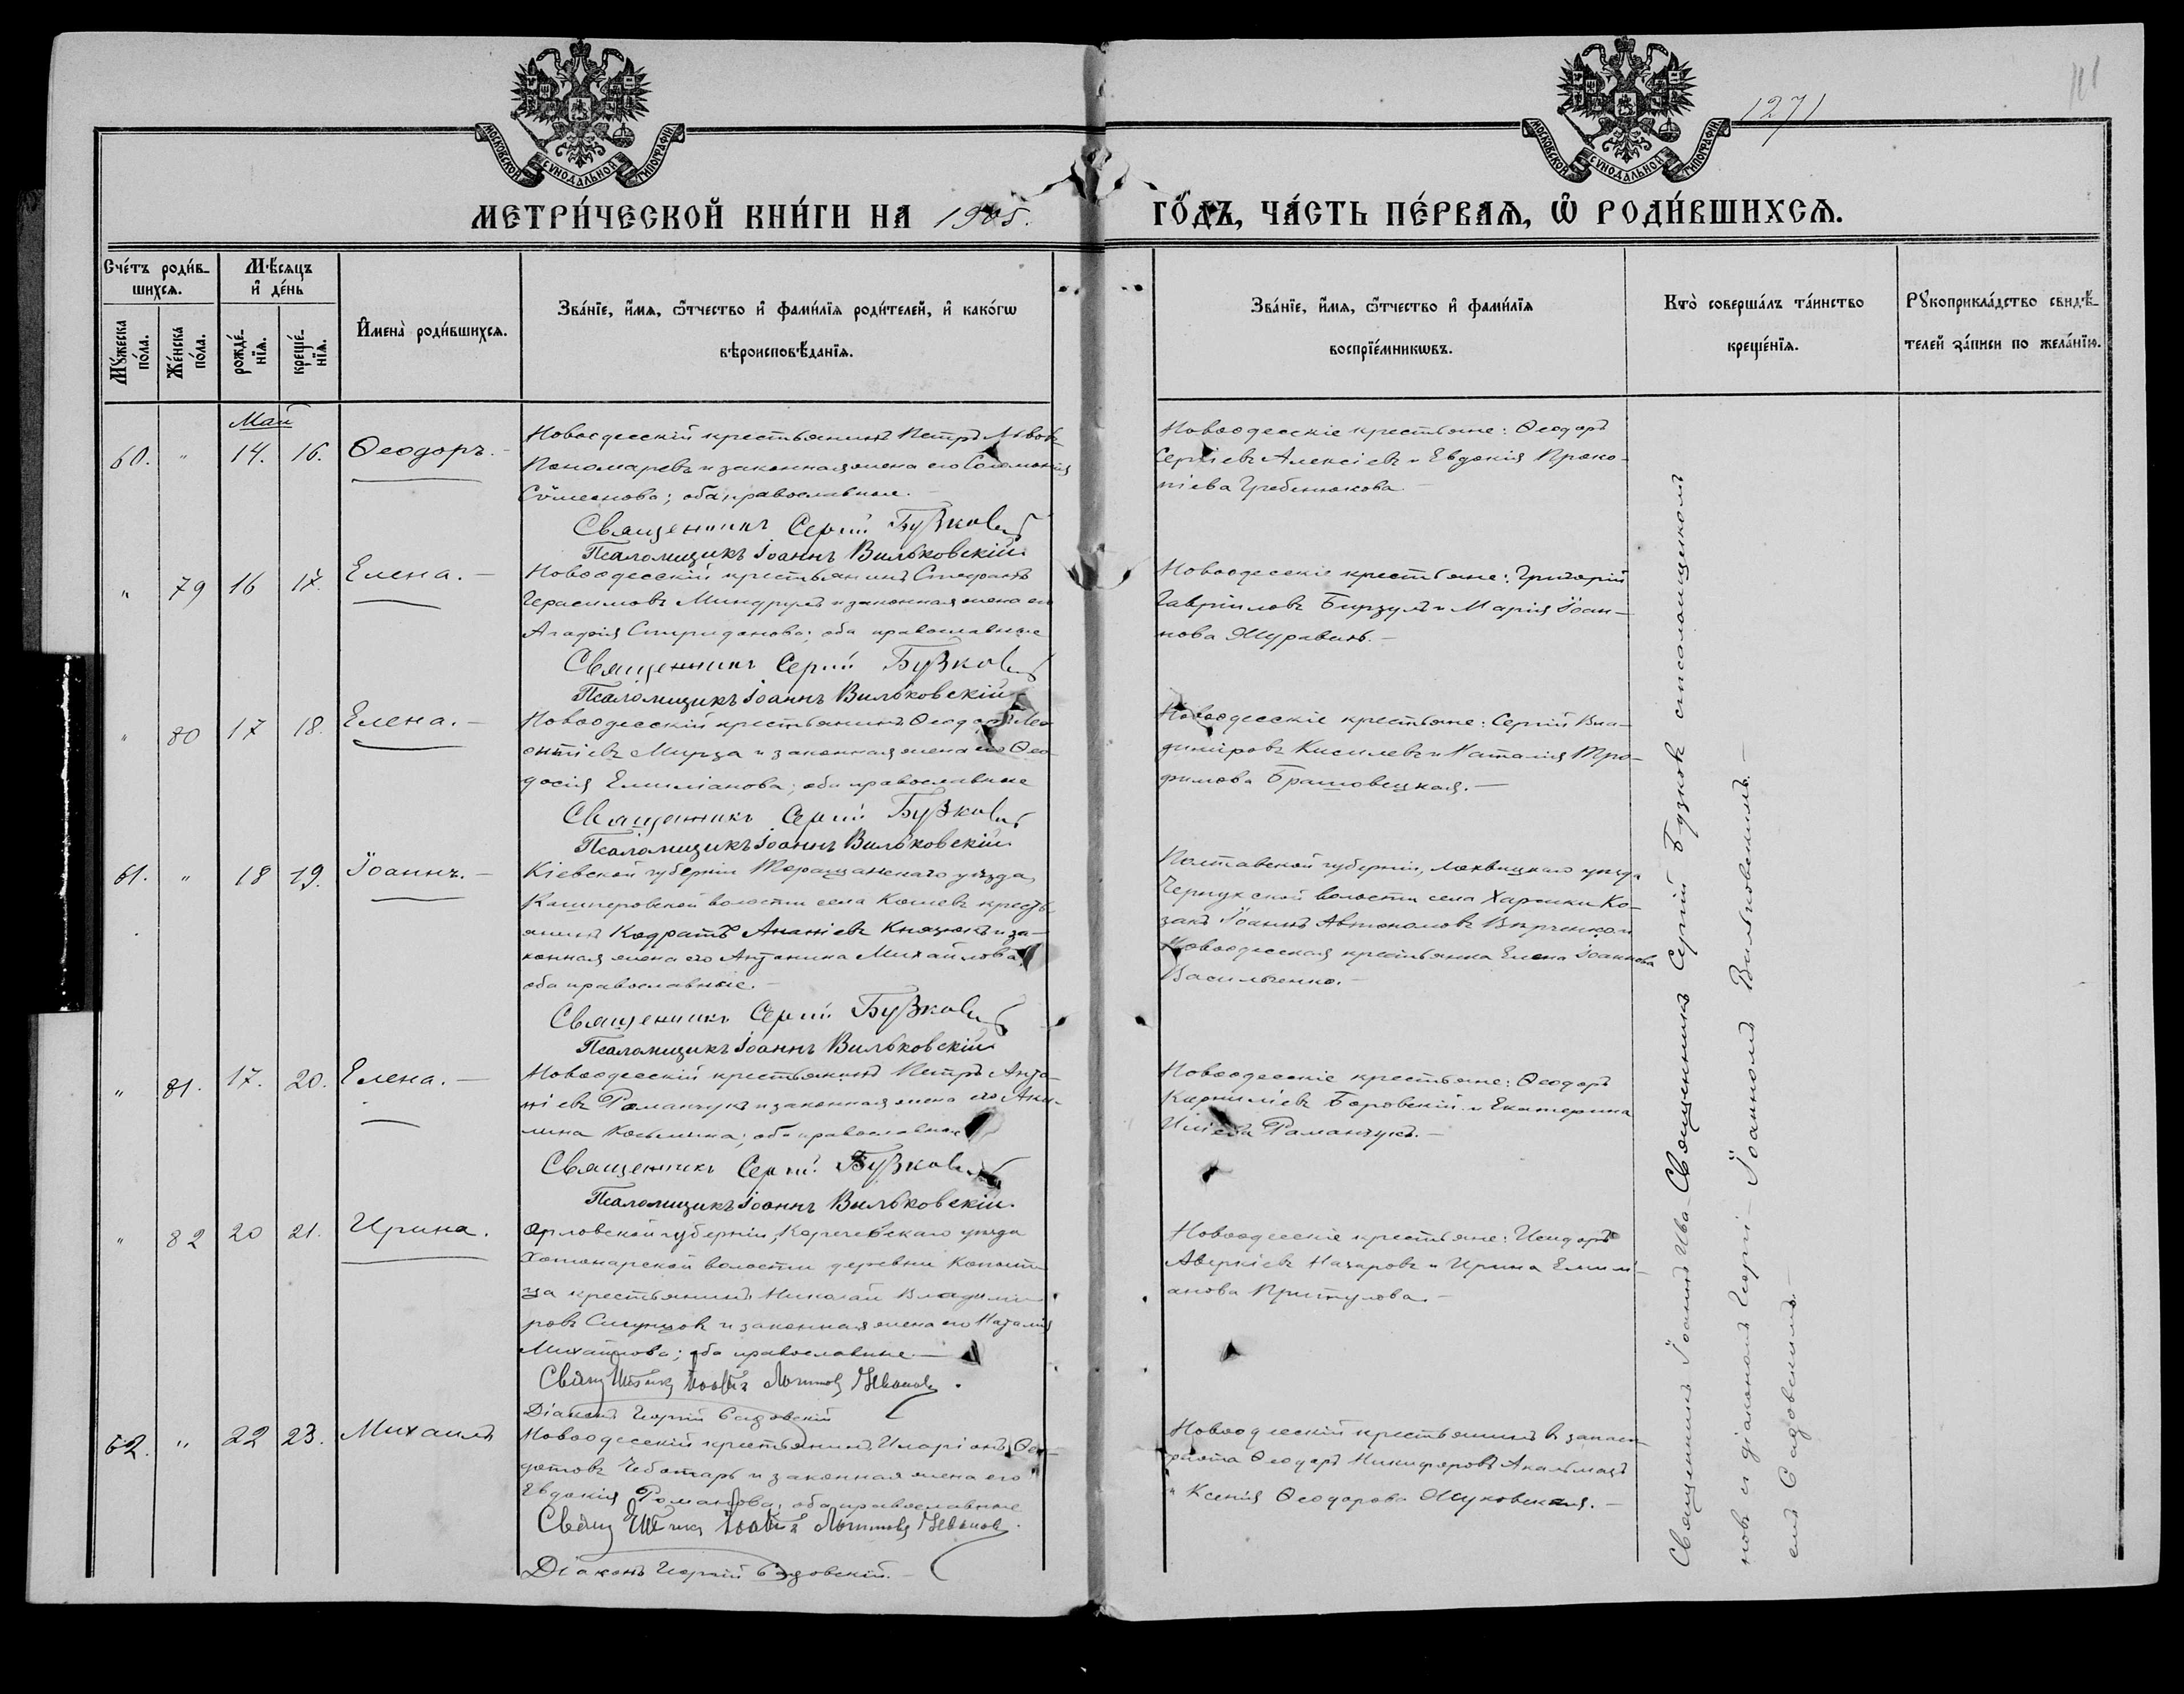 1271
МОСКОВСКОЙ СѴНОДАЛЬНОЙ ТИПОГРАФІИ
МОСКОВСКОЙ СѴНОДАЛЬНОЙ ТИПОГРАФІИ
МЕТРИ́ЧЕСКОЙ КНИ́ГИ НА 1905.
ГО́ДЪ, ЧА́СТЬ ПЕ́РВАѦ, Ѡ҆ РОДИ́ВШИХСѦ.
Сче́тъ роди́в-
шихсѧ.
Мꙋ́жеска по́ла.
Же́нска по́ла.
Мѣ́сѧцъ
и҆ де́нь
рожде́-
нїѧ.
креще́-
нїѧ.
И҆мена̀ роди́вшихсѧ.
Зва́нїе, и҆́мѧ, ѻ҆́тчество и҆ фами́лїѧ роди́телей, и҆ како́гѡ
вѣроисповѣ́данїѧ.
Зва́нїе, и҆́мѧ, ѻ҆́тчество и҆ фами́лїѧ
воспрїе́мникѡвъ.
Кто̀ соверша́лъ та́инство
креще́нїѧ.
Рꙋкоприкла́дство свидѣ́-
телей за́писи по жела́нїю.
Май
60. " 14. 16. Ѳеодоръ. -
Новоодесскій крестьянинъ Петръ Львовъ
Пономаревъ и законная жена его Соломонія
Сѷмеонова; оба православные. -
Священникъ Сергій Бузковъ
Псаломщикъ Іоаннъ Вильковскій
Новоодесскіе крестьяне: Ѳеодоръ
Сергіевъ Алексіевъ и Евдокія Проко-
піева Гребенюкова -
" 79 16 17. Елена. -
Новоодесскій крестьянинъ Стефанъ
Герасимовъ Миндрулъ и законная жена его
Агафія Спиридонова; оба православные
Священникъ Сергій Бузковъ
Псаломщикъ Іоаннъ Вильковскій
Новоодесскіе крестьяне: Григорій
Гавріиловъ Бирзулъ и Марія Іоан-
нова Журавель. -
" 80 17 18. Елена. -
Новоодесскій крестьянинъ Ѳеодоръ Ле-
онтіевъ Мирза и законная жена его Ѳео-
досія Емиліанова; оба православные
Священникъ Сергій Бузковъ
Псаломщикъ Іоаннъ Вильковскій
Новоодесскіе крестьяне: Сергій Вла-
диміровъ Киселевъ и Наталія Тро-
фимова Брашовецкая. -
61. " 18 19. Іоаннъ. -
Кіевской губерніи Таращанскаго уѣзда,
Кашперовской волости села Кошевъ кресть-
янинъ Кодратъ Ананіевъ Князюкъ и за-
конная жена его Антонина Михайлова;
оба православные. -
Священникъ Сергій Бузковъ
Псаломщикъ Іоаннъ Вильковскій
Полтавской губерніи, Лохвицкаго уѣзда
волости села Харсики Ко-
закъ Іоаннъ Автономовъ и
Новоодесская крестьянка Елена Іоаннова
Васильченко. -
" 81. 17. 20. Елена. -
Новоодесскій крестьянинъ Петръ Анто-
ніевъ Романчукъ и законная жена его Аки-
лина Косьмина; оба православные
Священникъ Сергій Бузковъ
Псаломщикъ Іоаннъ Вильковскій.
Новоодесскіе крестьяне: Ѳеодоръ
Корниліевъ Боровскій и Екатерина
Иліева Романчукъ. -
" 82 20 21. Ирина.
Орловской губерніи, Карачевскаго уѣзда
волости деревни
крестьянинъ Николай Владимі-
ровъ и законная жена его Наталія
Михайлова; оба православные. -
Священникъ Іоаннъ Логиновъ Ивановъ.
Діаконъ Георгій Садовскій
Новоодесскіе крестьяне: Исидоръ
Аверкіевъ Назаровъ и Ирина Емилі-
анова Притулова. -
62. " 22 23. Михаилъ
Новоодесскій крестьянинъ Иларіонъ Ѳео-
дотовъ Чеботарь и законная жена его
Евдокія Романова; оба православные
Священникъ Іоаннъ Логиновъ Ивановъ.
Діаконъ Георгій Садовскій. -
Новоодесскій крестьянинъ въ запасѣ
флота Ѳеодоръ Никифоровъ
и Ксенія Ѳеодорова Жуковская. -
Священникъ Іоаннъ Ива- Священникъ Сергій Бузковъ съ псаломщикомъ
новъ съ діакономъ Георгі- Іоанномъ Вильковскимъ. -
емъ Садовскимъ. -